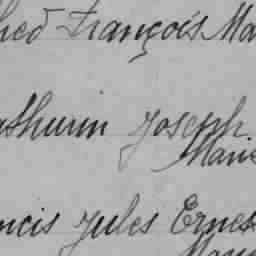 hed François Ma
athurin Joseph
Marie
ncis Jules Ernes